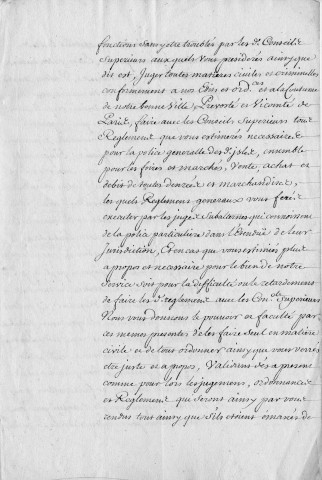 fonctions Sans y etre troublés par les d. Conseils
Superieurs aux quels Vous presiderés ainsy que
dit est, Juger toutes matieres civiles et Criminelles
conformement a nos Edits et ord.ces et a la Coutume
de notre bonne Ville, Prevoté et Vicomté de
Paris, faire avec les Conseils Superieurs tout
Reglement que vous estimerés necessaire
pour la police generalle des d. isles, ensemble
pour les foires et marchés, Vente, achat et
debit de toutes denrées et marchandises,
les quels Reglemens generaux vous ferés
executer par les juges Subalternes qui connoissent
de la police particuliere dans l'etendüe de leur
Jurisdiction, Et en cas que vous estimiés plus
a propos et necessaire pour le bien de notre
Service soit pour la difficulté ou le retardement
de faire les d. reglement avec les Con.els Superieurs
Nous vous donnons le pouvoir et faculté par
ces memes presentes de les faire Seul en matiere
civile et de tout ordonner ainsy que vous verrés
etre juste et a propos, Validons dés a present
comme pour lors les jugemens, ordonnances
et Reglement qui seront ainsy par vous
rendus tout ainsy que S'ils etoient emanés de